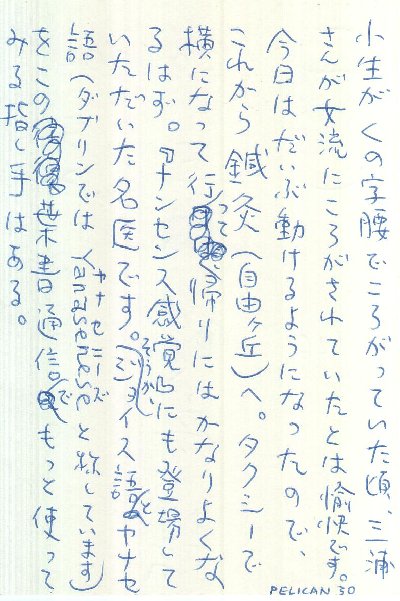 小生がくの字腰でころがっていた頃、三浦
さんが女流にころがされていたとは愉快です。
今日はだいぶ動けるようになったので、
これから鍼灸(自由ヶ丘)へ。タクシーで
横になって行って帰りにはかなりよくな
るはず。『ナンセンス感覚』にも登場して
いただいた名医です。(ジョイス語とヤナセ
語(ダブリンではYanasehese ヤナセニーズと称しています)
をこの葉書通信でもっと使って
みる指し手はある。
PELICAN 30